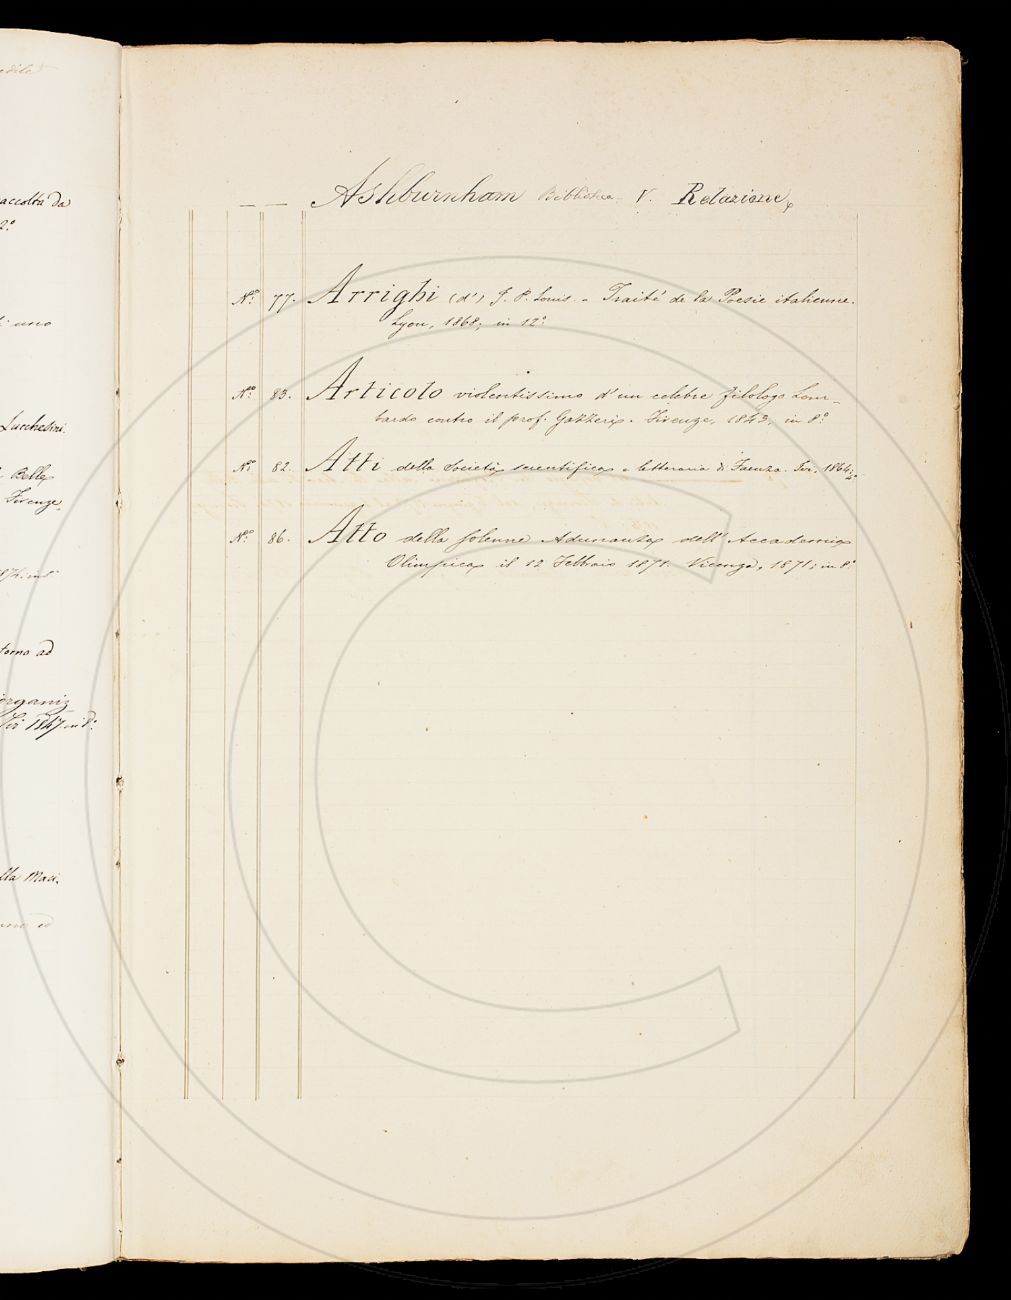 accolta da
2°
uno
Lucchesini.
Belle
Firenze,
torno ad
organiz
1847 in 8°
lla Maci-
— — Ashburnham Biblioteca. V. Relazione
N.° 77. Arrighi (d') J. P. Louis. - Traité de la Poesie italienne.
Lyon, 1868; in 12°
N.° 83. Articolo violentissimo d'un celebre filologo Lom-
bardo contro il prof. Gazzeri. Firenze, 1843, in 8°
N.° 82. Atti della Società scientifica e letteraria di Faenza. 1864;
N.° 86. Atto della solenne Adunanza dell'Accademia
Olimpica il 12 Febbraio 1871. Vicenza, 1871; in 8°